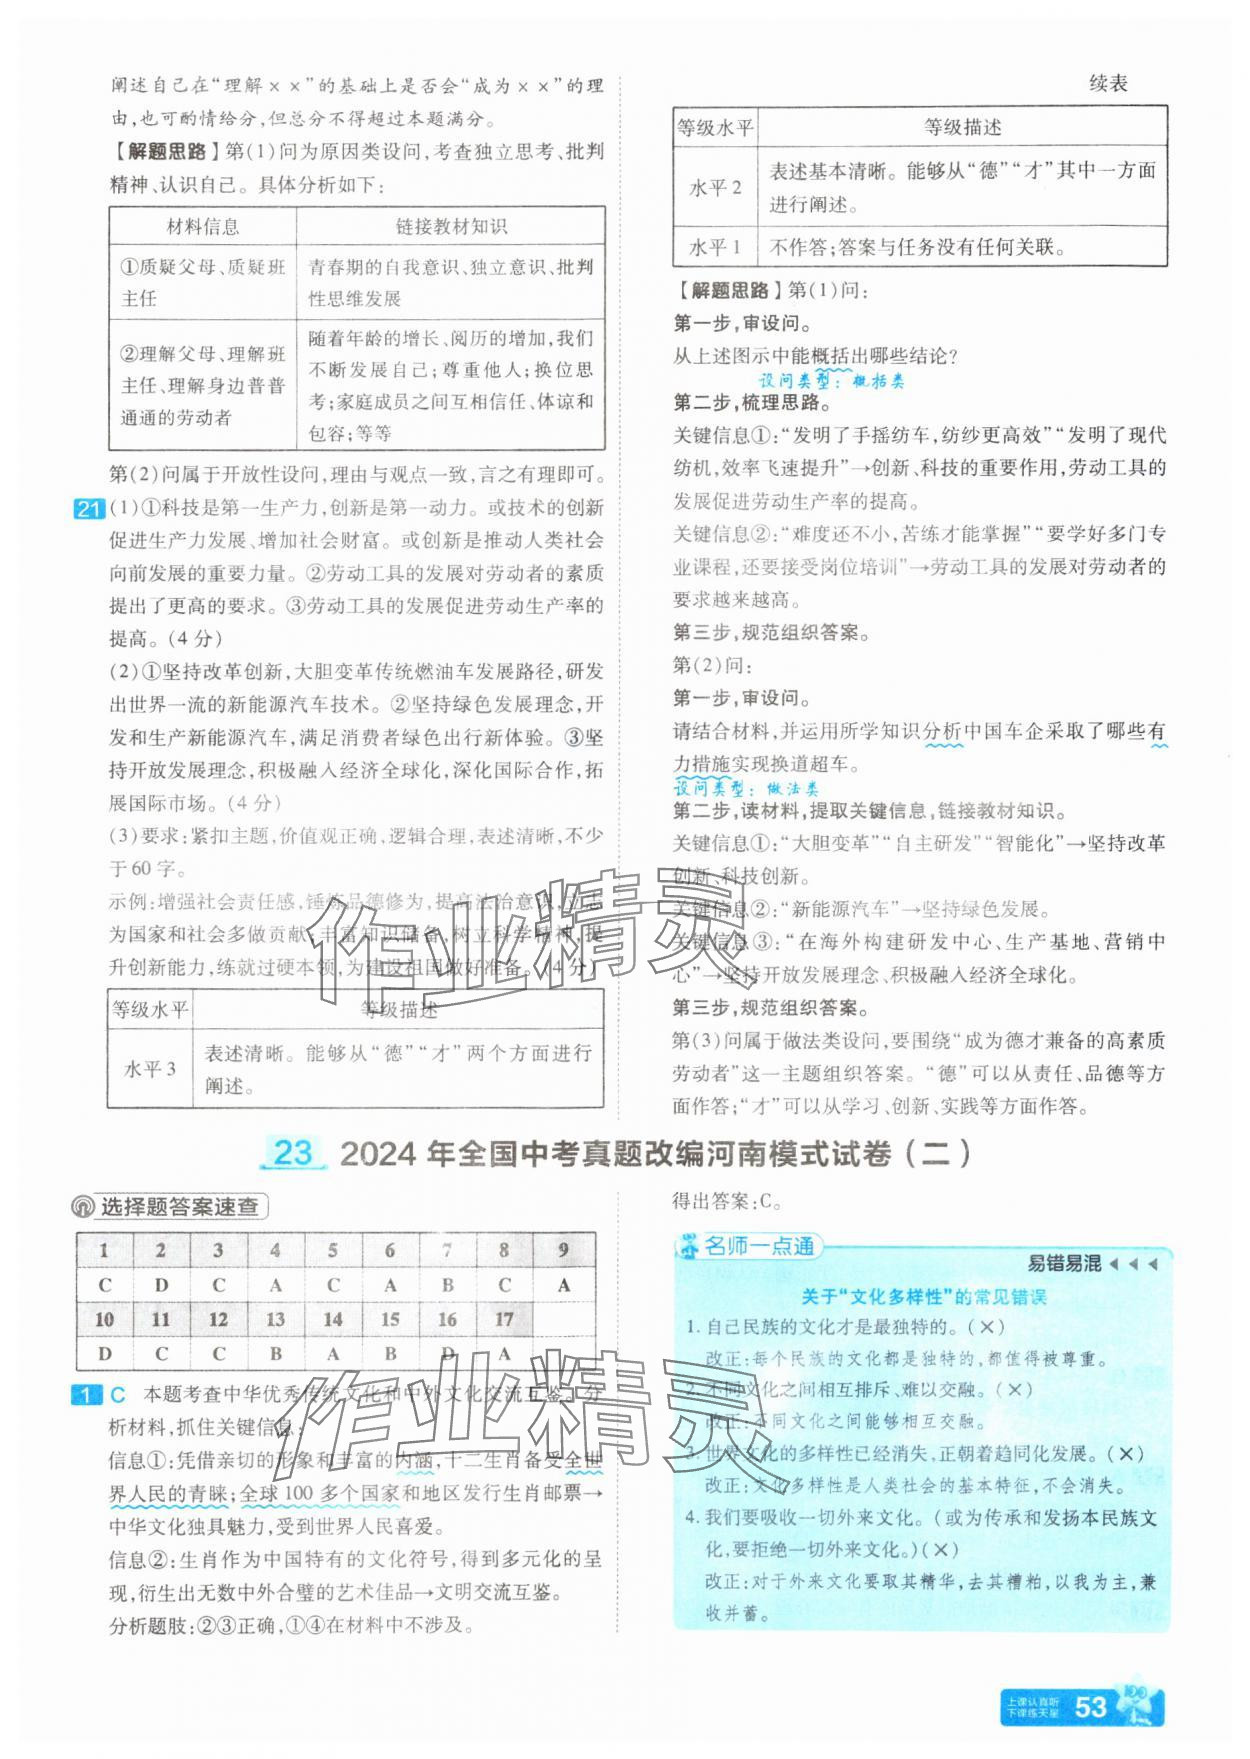 阐述自己在“理解××”的基础上是否会“成为××”的理
由,也可酌情给分,但总分不得超过本题满分。
【解题思路】第(1)问为原因类设问,考查独立思考、批判
精神、认识自己。具体分析如下:
材料信息 链接教材知识
①质疑父母、质疑班
主任
青春期的自我意识、独立意识、批判
性思维发展
②理解父母、理解班
主任、理解身边普普
通通的劳动者
随着年龄的增长、阅历的增加,我们
不断发展自己;尊重他人;换位思
考;家庭成员之间互相信任、体谅和
包容;等等
第(2)问属于开放性设问,理由与观点一致,言之有理即可。
21 (1)①科技是第一生产力,创新是第一动力。或技术的创新
促进生产力发展、增加社会财富。或创新是推动人类社会
向前发展的重要力量。②劳动工具的发展对劳动者的素质
提出了更高的要求。③劳动工具的发展促进劳动生产率的
提高。(4分)
(2)①坚持改革创新,大胆变革传统燃油车发展路径,研发
出世界一流的新能源汽车技术。②坚持绿色发展理念,开
发和生产新能源汽车,满足消费者绿色出行新体验。③坚
持开放发展理念,积极融入经济全球化,深化国际合作,拓
展国际市场。(4分)
(3)要求:紧扣主题,价值观正确,逻辑合理,表述清晰,不少
于60字。
示例:增强社会责任感,锤炼品德修为,提高法治意识,立志
为国家和社会多做贡献;丰富知识储备,树立科学精神,提
升创新能力,练就过硬本领,为建设祖国做好准备。(4分)
等级水平 等级描述
水平3
表述清晰。能够从“德”“才”两个方面进行
阐述。
续表
等级水平 等级描述
水平2
表述基本清晰。能够从“德”“才”其中一方面
进行阐述。
水平1 不作答;答案与任务没有任何关联。
【解题思路】第(1)问:
第一步,审设问。
从上述图示中能概括出哪些结论?
设问类型:概括类
第二步,梳理思路。
关键信息①:“发明了手摇纺车,纺纱更高效”“发明了现代
纺机,效率飞速提升”→创新、科技的重要作用,劳动工具的
发展促进劳动生产率的提高。
关键信息②:“难度还不小,苦练才能掌握”“要学好多门专
业课程,还要接受岗位培训”→劳动工具的发展对劳动者的
要求越来越高。
第三步,规范组织答案。
第(2)问:
第一步,审设问。
请结合材料,并运用所学知识分析中国车企采取了哪些有
力措施实现换道超车。
设问类型:做法类
第二步,读材料,提取关键信息,链接教材知识。
关键信息①:“大胆变革”“自主研发”“智能化”→坚持改革
创新、科技创新。
关键信息②:“新能源汽车”→坚持绿色发展。
关键信息③:“在海外构建研发中心、生产基地、营销中
心”→坚持开放发展理念、积极融入经济全球化。
第三步,规范组织答案。
第(3)问属于做法类设问,要围绕“成为德才兼备的高素质
劳动者”这一主题组织答案。“德”可以从责任、品德等方
面作答;“才”可以从学习、创新、实践等方面作答。
23 2024年全国中考真题改编河南模式试卷(二)
选择题答案速查
1 2 3 4 5 6 7 8 9
C D C A C A B C A
10 11 12 13 14 15 16 17
D C C B A B D A
1 C 本题考查中华优秀传统文化和中外文化交流互鉴。分
析材料,抓住关键信息:
信息①:凭借亲切的形象和丰富的内涵,十二生肖备受全世
界人民的青睐;全球100多个国家和地区发行生肖邮票→
中华文化独具魅力,受到世界人民喜爱。
信息②:生肖作为中国特有的文化符号,得到多元化的呈
现,衍生出无数中外合璧的艺术佳品→文明交流互鉴。
分析题肢:②③正确,①④在材料中不涉及。
得出答案:C。
名师一点通
易错易混
关于“文化多样性”的常见错误
1. 自己民族的文化才是最独特的。(×)
改正:每个民族的文化都是独特的,都值得被尊重。
2. 不同文化之间相互排斥、难以交融。(×)
改正:不同文化之间能够相互交融。
3. 世界文化的多样性已经消失,正朝着趋同化发展。(×)
改正:文化多样性是人类社会的基本特征,不会消失。
4. 我们要吸收一切外来文化。(或为传承和发扬本民族文
化,要拒绝一切外来文化。)(×)
改正:对于外来文化要取其精华,去其糟粕,以我为主,兼
收并蓄。
作业精灵
作业精灵
上课认真听
下课练天星
53
100